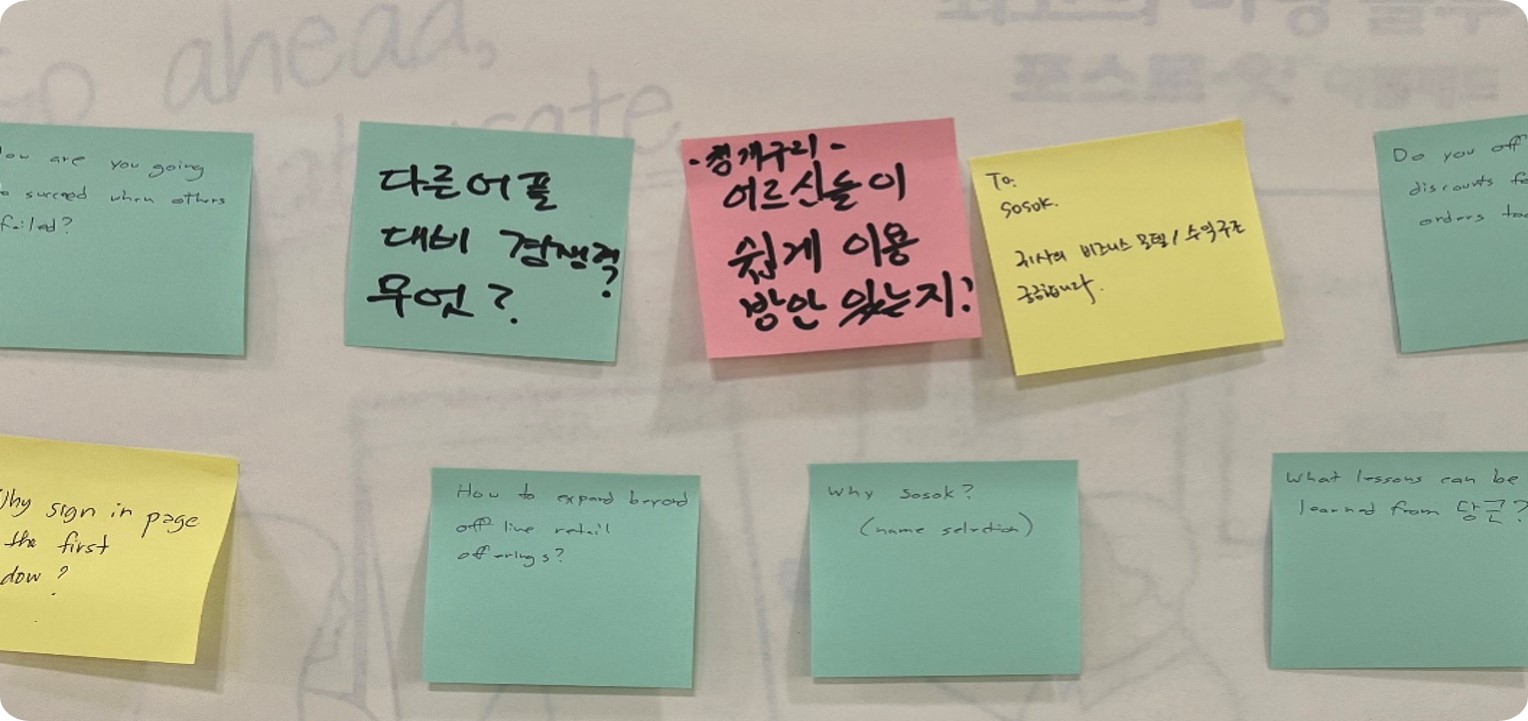 ahead,
are you going
succeed when others
failed?
다른 어플
대비 경쟁력
무엇?
-청개구리-
어르신들이
쉽게 이용
방안 있는지?
To.
Sosok.
귀사의 비즈니스 모델/수익구조
궁금합니다.
Do you
discounts
orders
sign in page
the first
?
How to expand beyond
offline retail
offerings?
Why sosok?
(name selection)
What lessons can be
learned from 당근?